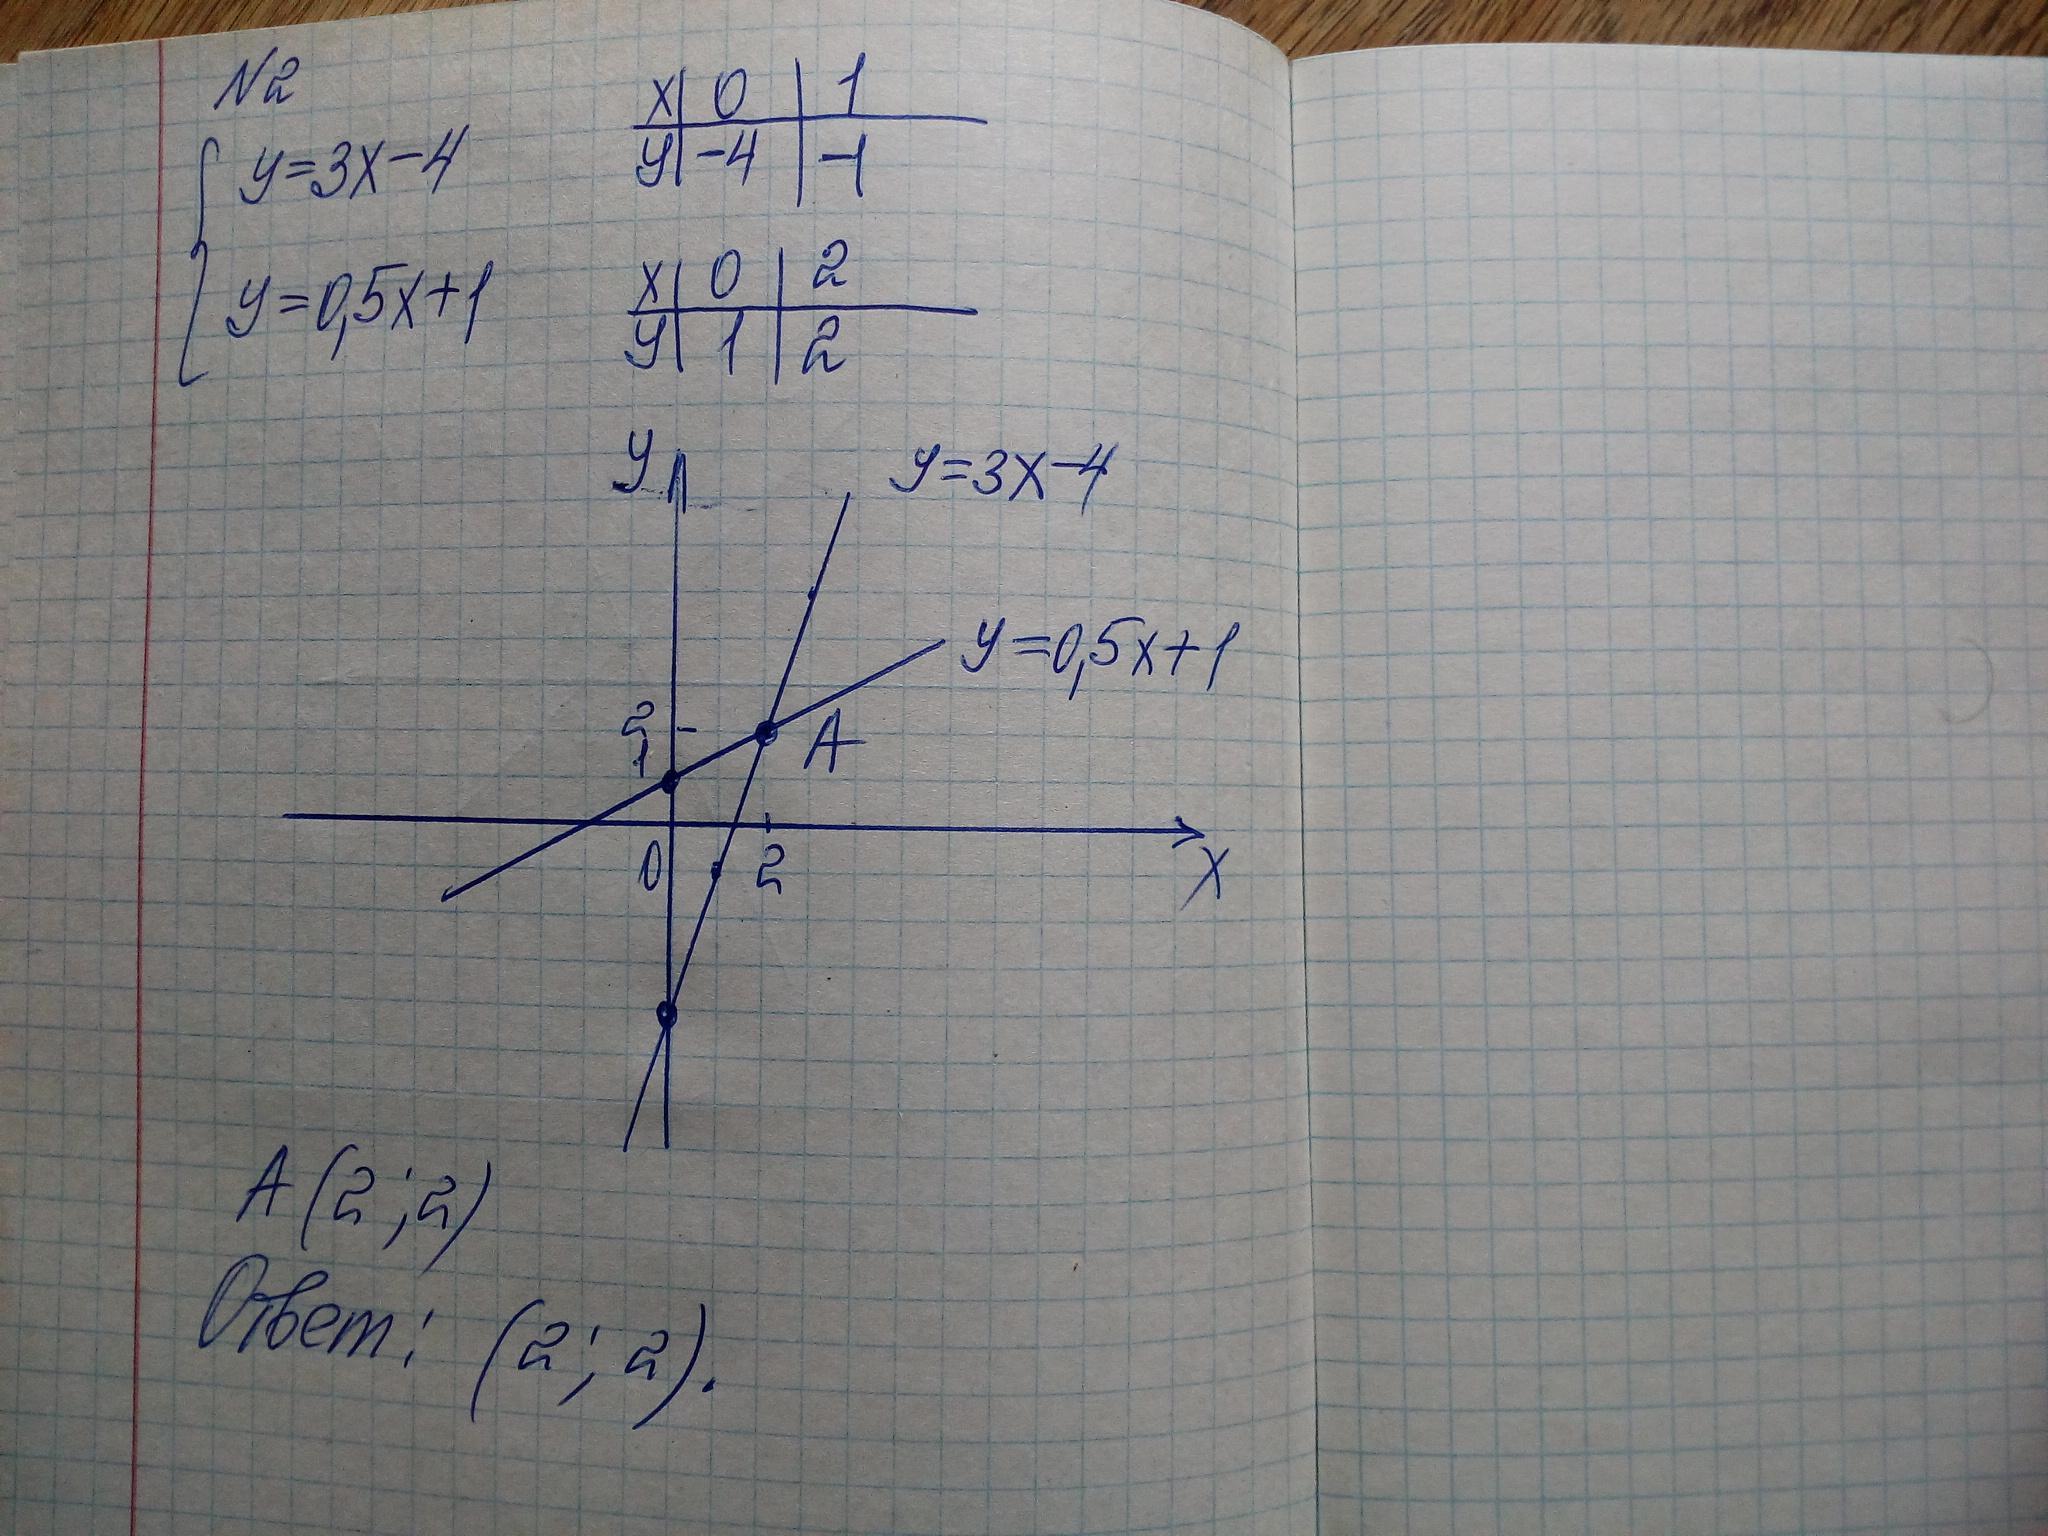 N2
y=3x-4
x 0 1
y -4 -1
y=0,5x+1
x 0 2
y 1 2
y
y=3x-4
y=0,5x+1
2
1
A
0 2
x
A(2;2)
Ответ: (2; 2).